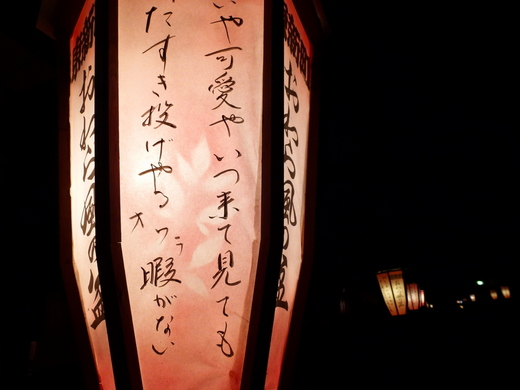 おわら風の盆
いや可愛やいつ来て見ても
たすき投げやるオワラ暇がない
おわら風の盆